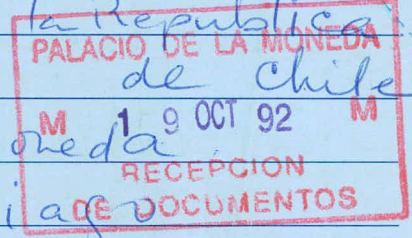 la República
PALACIO DE LA MONEDA
de Chile
M 19 OCT 92 M
oneda
RECEPCION
iago
DE DOCUMENTOS